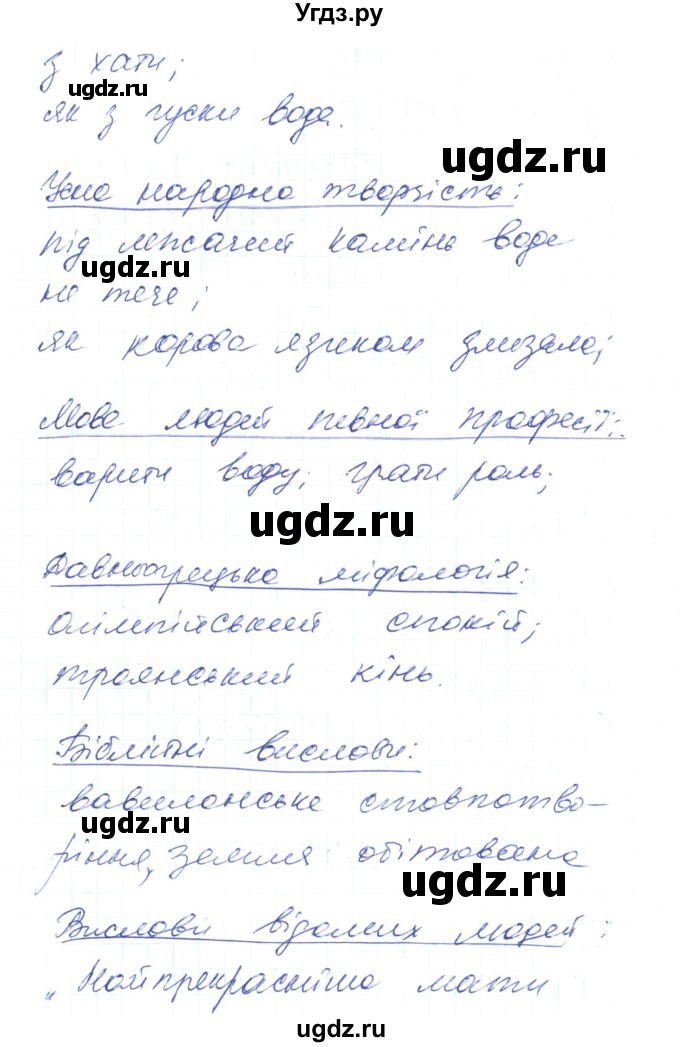 Угдз.ру
з хати;
ugdz.ru
як з гуски вода.
ugdz.ru
Усна народна творчість:
під лежачий камінь вода
ugdz.ru
не тече;
як корова язиком злизала;
Мова людей певної професії:
варити воду; грати роль;
ugdz.ru
Давньогрецька міфологія:
олімпійський спокій;
троянський кінь.
Біблійні вислови:
вавилонське стовпотво-
ugdz.ru
ріння, земля обітована
ugdz.ru
Вислови відомих людей:
„Найпрекрасніша мати
ugdz.ru